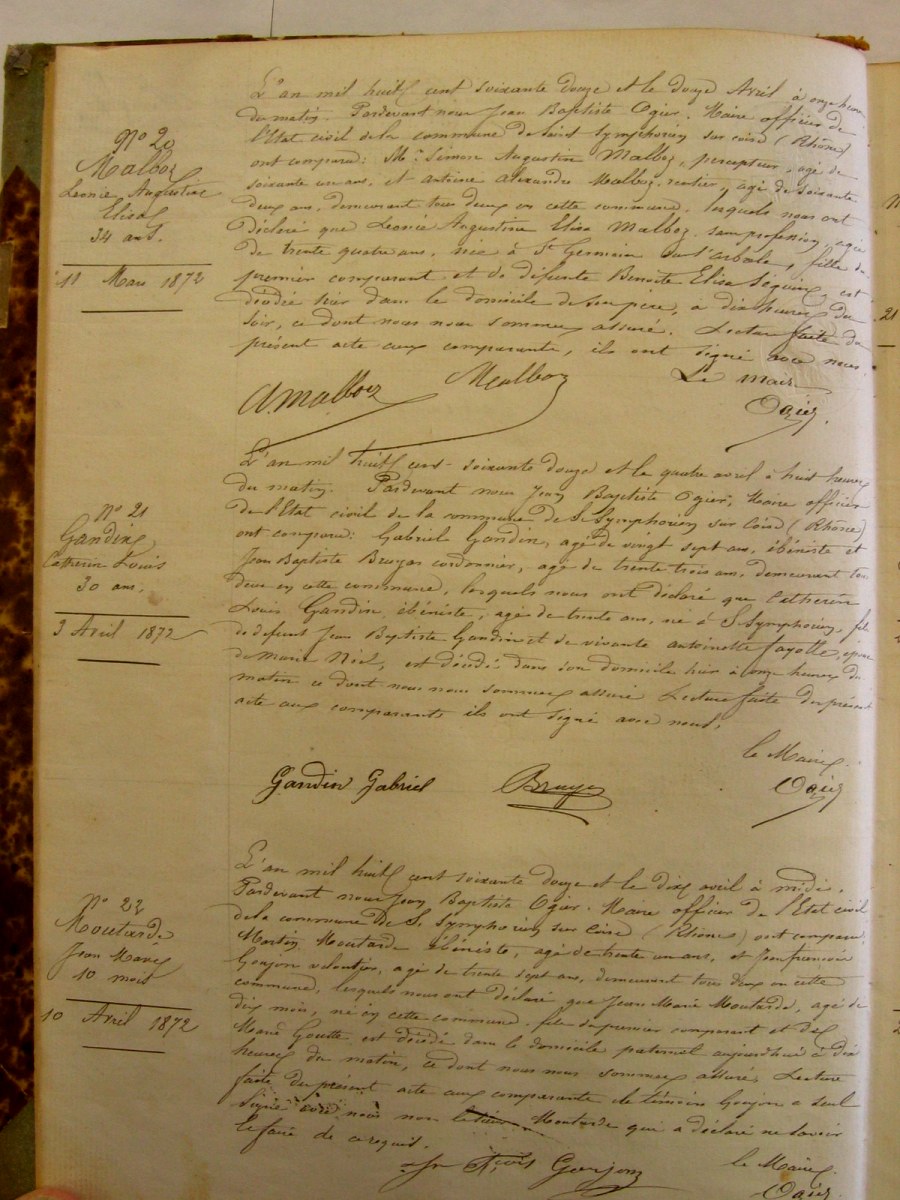 L'an mil huit cent soixante douze et le douze Avril à onze heures
du matin. Pardevant nous Jean Baptiste Ogier. Maire officier de
l'Etat civil de la commune de Saint Symphorien sur coise (Rhône)
ont comparu: Mr. Simon Augustin Malboz, percepteur, agé de
soixante un ans, et antoine alexandre Malboz, rentier, agé de soixante
deux ans, demeurant tous deux en cette commune, lesquels nous ont
Déclaré que Léonie Augustine Elisa Malboz, sans profession, agée
de trente quatre ans, née à St Germain sur l'arbresle, fille du
premier comparant et de défunte Benoite Elisa Seguin, est
décédée hier dans le domicile de son père, à dix heures du
soir, ce dont nous nous sommes assuré. Lecture faite du
présent acte aux comparants, ils ont signé avec nous.
No 20
Malboz
Leonie Augustine
Elisa
34 ans.
11 Mars 1872
A. Malboz Malboz Le Maire
Ogier.
L'an mil huit cent soixante douze et le quatre avril à huit heures
du matin. Pardevant nous Jean Baptiste Ogier, Maire officier
de l'Etat civil de la commune de St Symphorien sur Coise (Rhône)
ont comparu: Gabriel Gandin, agé de vingt sept ans, ébéniste et
Jean Baptiste Bruyas cordonnier, agé de trente trois ans, demeurant tous
deux en cette commune, lesquels nous ont déclaré que Catherin
Louis Gandin, ébéniste, agé de trente ans, né à St Symphorien, fils
de défunt Jean Baptiste Gandin et de vivante antoinette fayolle, époux
de Marie Niel, est décédé dans son domicile hier à onze heures du
matin ce dont nous nous sommes assuré Lecture faite du présent
acte aux comparants ils ont signé avec nous.
No 21
Gandin
Catherin Louis
30 ans.
3 Avril 1872
le Maire
Gandin Gabriel Bruyas Ogier
L'an mil huit cent soixante douze et le dix avril à midi.
Pardevant nous Jean Baptiste Ogier. Maire officier de l'Etat civil
de la commune De St Symphorien sur Coise (Rhône) ont comparu
Martin Moutarde ébéniste, agé de trente un ans, et Jean francois
Goujon, agé de trente sept ans, demeurant tous deux en cette
commune, lesquels nous ont déclaré, que Jean Marie Moutarde, agé de
dix mois, né en cette commune. fils du premier comparant et de
Marie Goutte, est décédé dans le domicile paternel aujourd'hui à dix
heures du matin, ce dont nous nous sommes assuré, Lecture
faite du présent acte aux comparants le témoin Goujon a seul
signé avec nous non Moutarde qui a déclaré ne savoir
le faire de ce requis.
No 22
Moutarde
Jean Marie
10 mois
10 Avril 1872
le Maire
Goujon Ogier
21